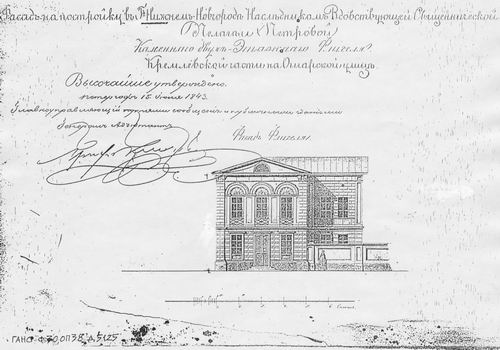 Фасадъ на постройку въ Нижнемъ Новгородѣ Наслѣдникамъ Вдовствующей Священнической
Пелагеи Петровой
Каменнаго двухъ-Этажнаго Флигеля
Кремлевской части на Ошарской улицѣ.
Высочайше утверждено.
15 Июня 1843.
Главноуправляющій путями сообщенія и публичными зданіями
Генералъ Адъютантъ
Фасадъ Флигеля.
ГАНО Ф. 30 ОП 35 Д. 5125